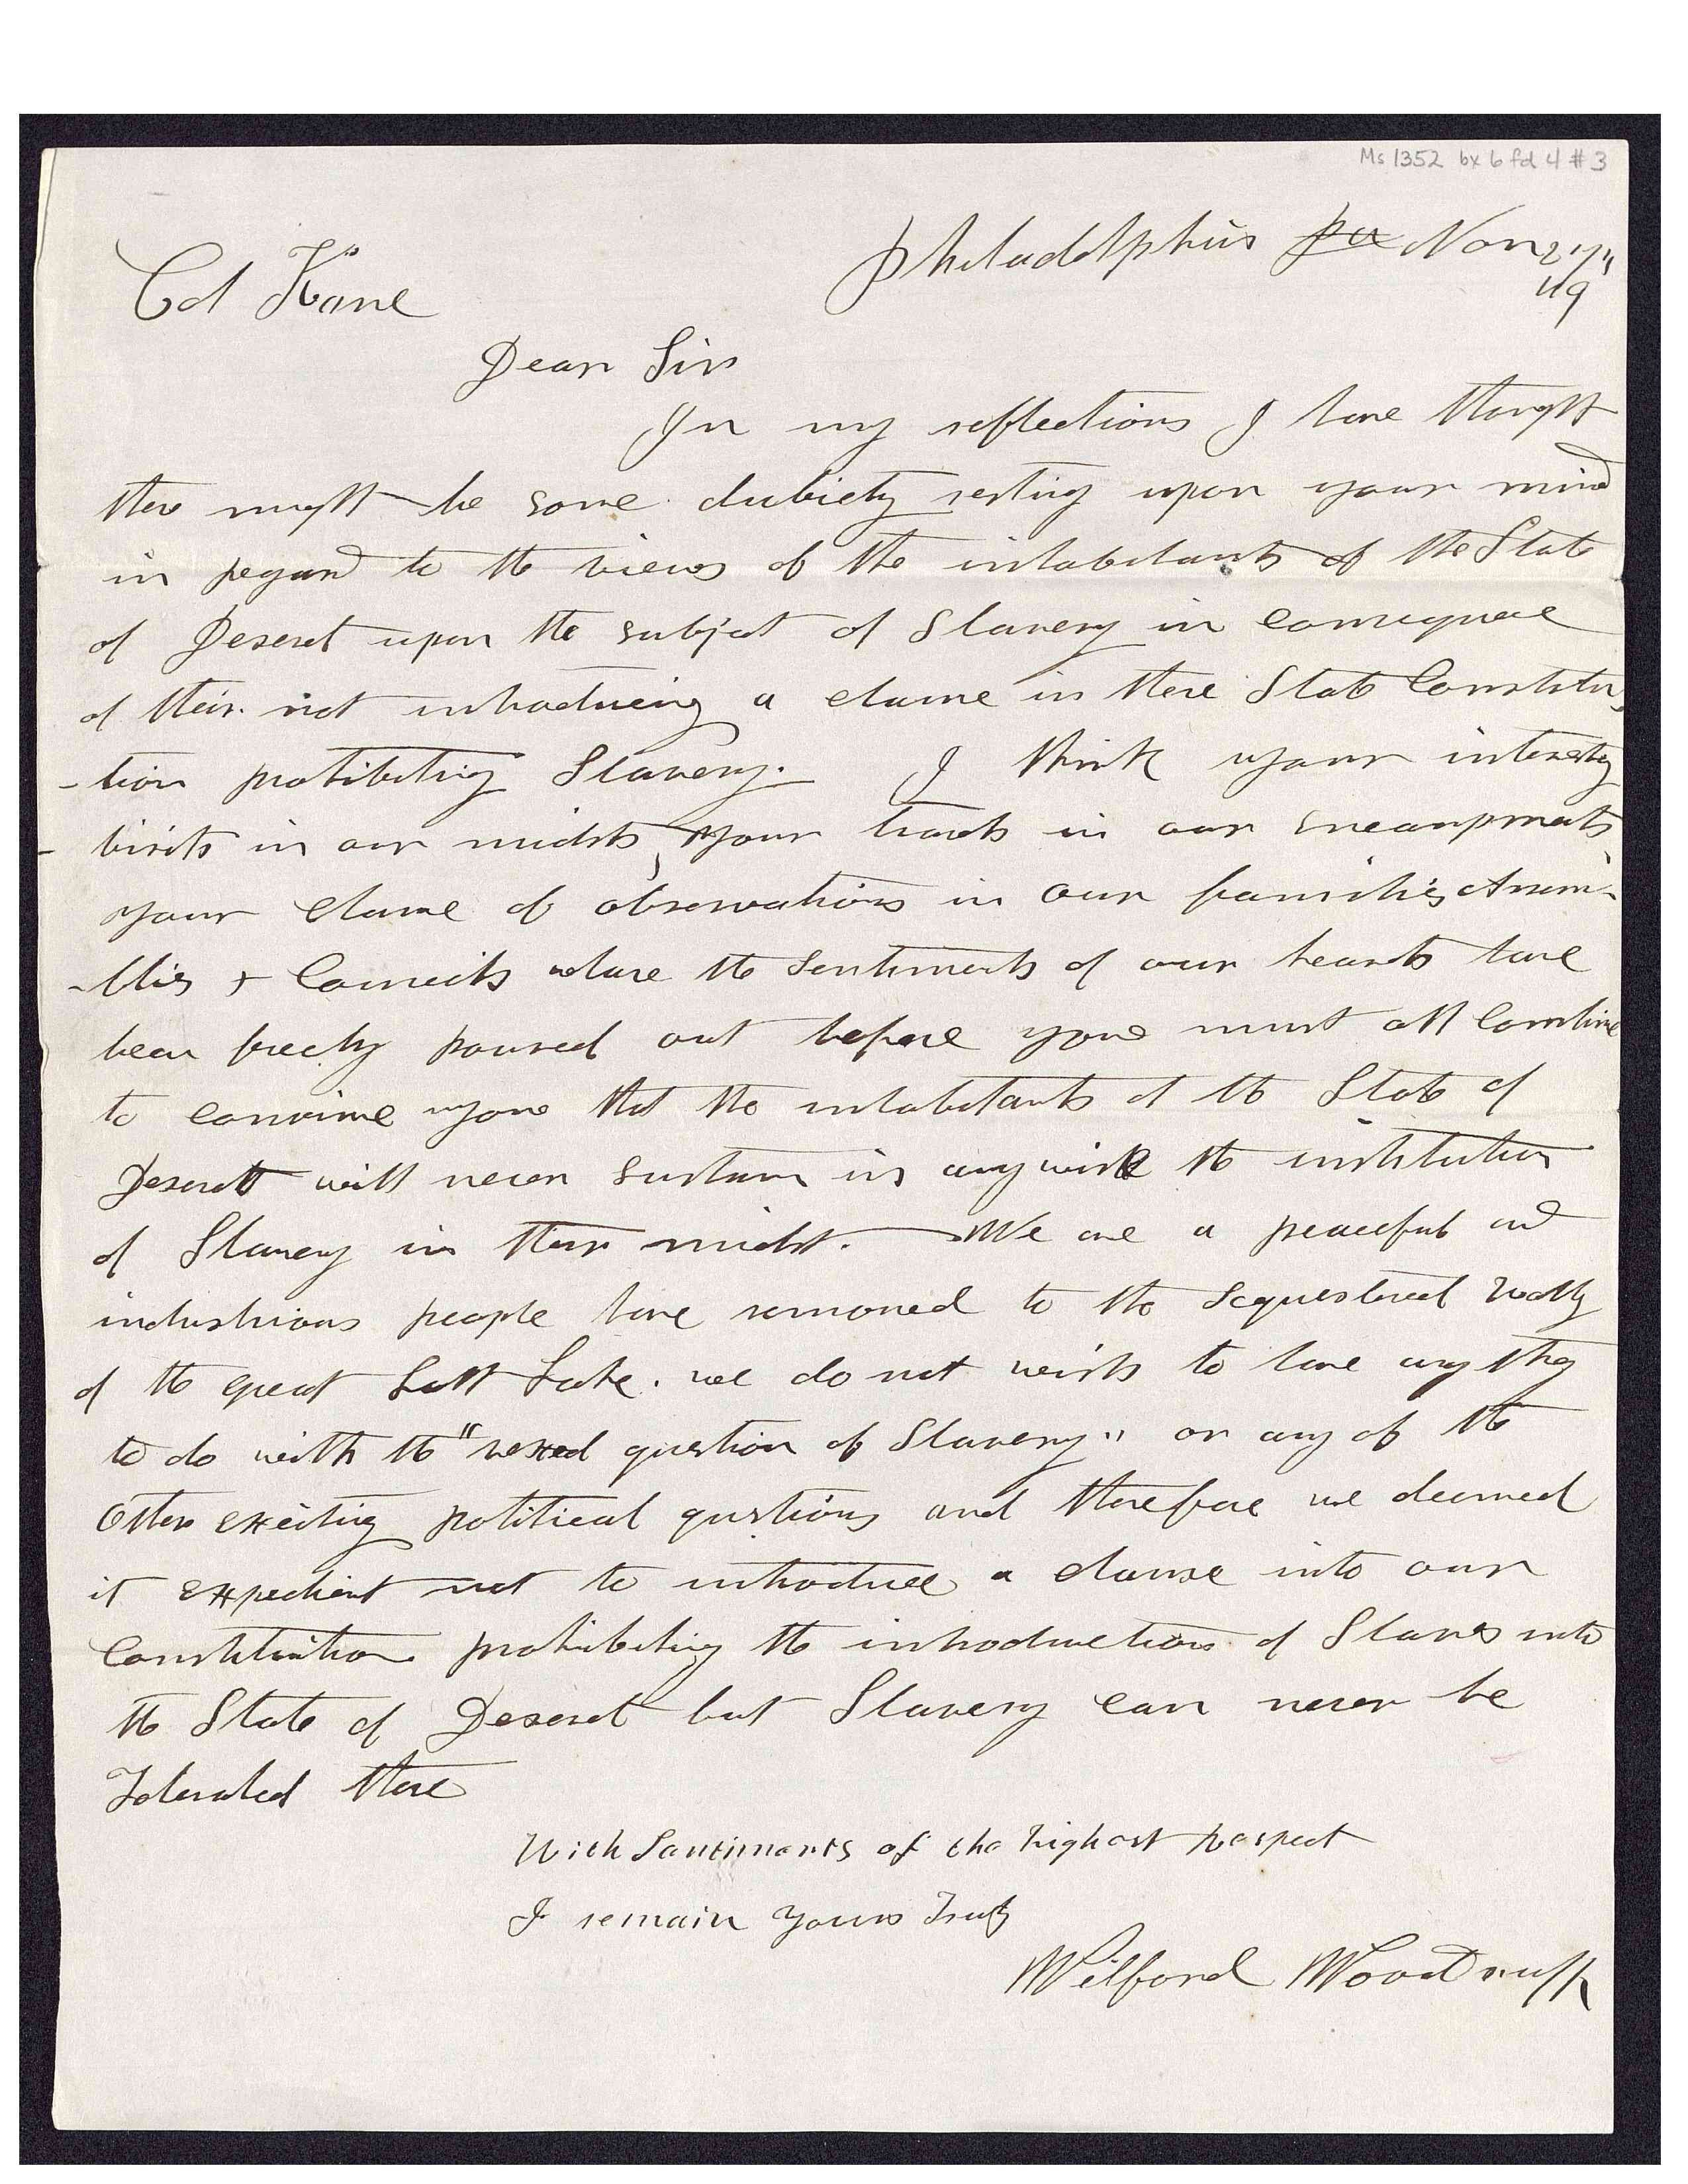 Ms 1352 bx 6 fd 4 # 3
Philadelphia Pa Nov 27"
49
Col Kane
Dear Sir
In my reflections I have thought
there might be some dubiety resting upon your mind
in regard to the views of the inhabitants of the State
of Deseret upon the subject of Slavery in consequence
of their not introducing a clause in there State Constitu
-tion prohibiting Slavery. I think your
visits in our midsts, your travels in our encampments
your of observations in our families Assem-
-blies + Councils whare the Sentiments of our hearts have
been freely poured out before you must all combine
to convince you that the inhabitants of the State of
Deserett will never sustain in any wise the institution
of Slavery in their midst. We are a peaceful and
industrious people have removed to the Sequestered vally
of the great Salt Lake. we do not wish to have any thing
to do with the "vexed question of Slavery" or any of the
Other exciting political qustions and therefore we deemed
it expedient not to introduce a clause into our
Constitution prohibiting the introduction of Slaves into
the State of Deseret but Slavery can never be
Tolerated there
With Sentiments of the highest respect
I remain Yours Truly
Wilford Woodruff